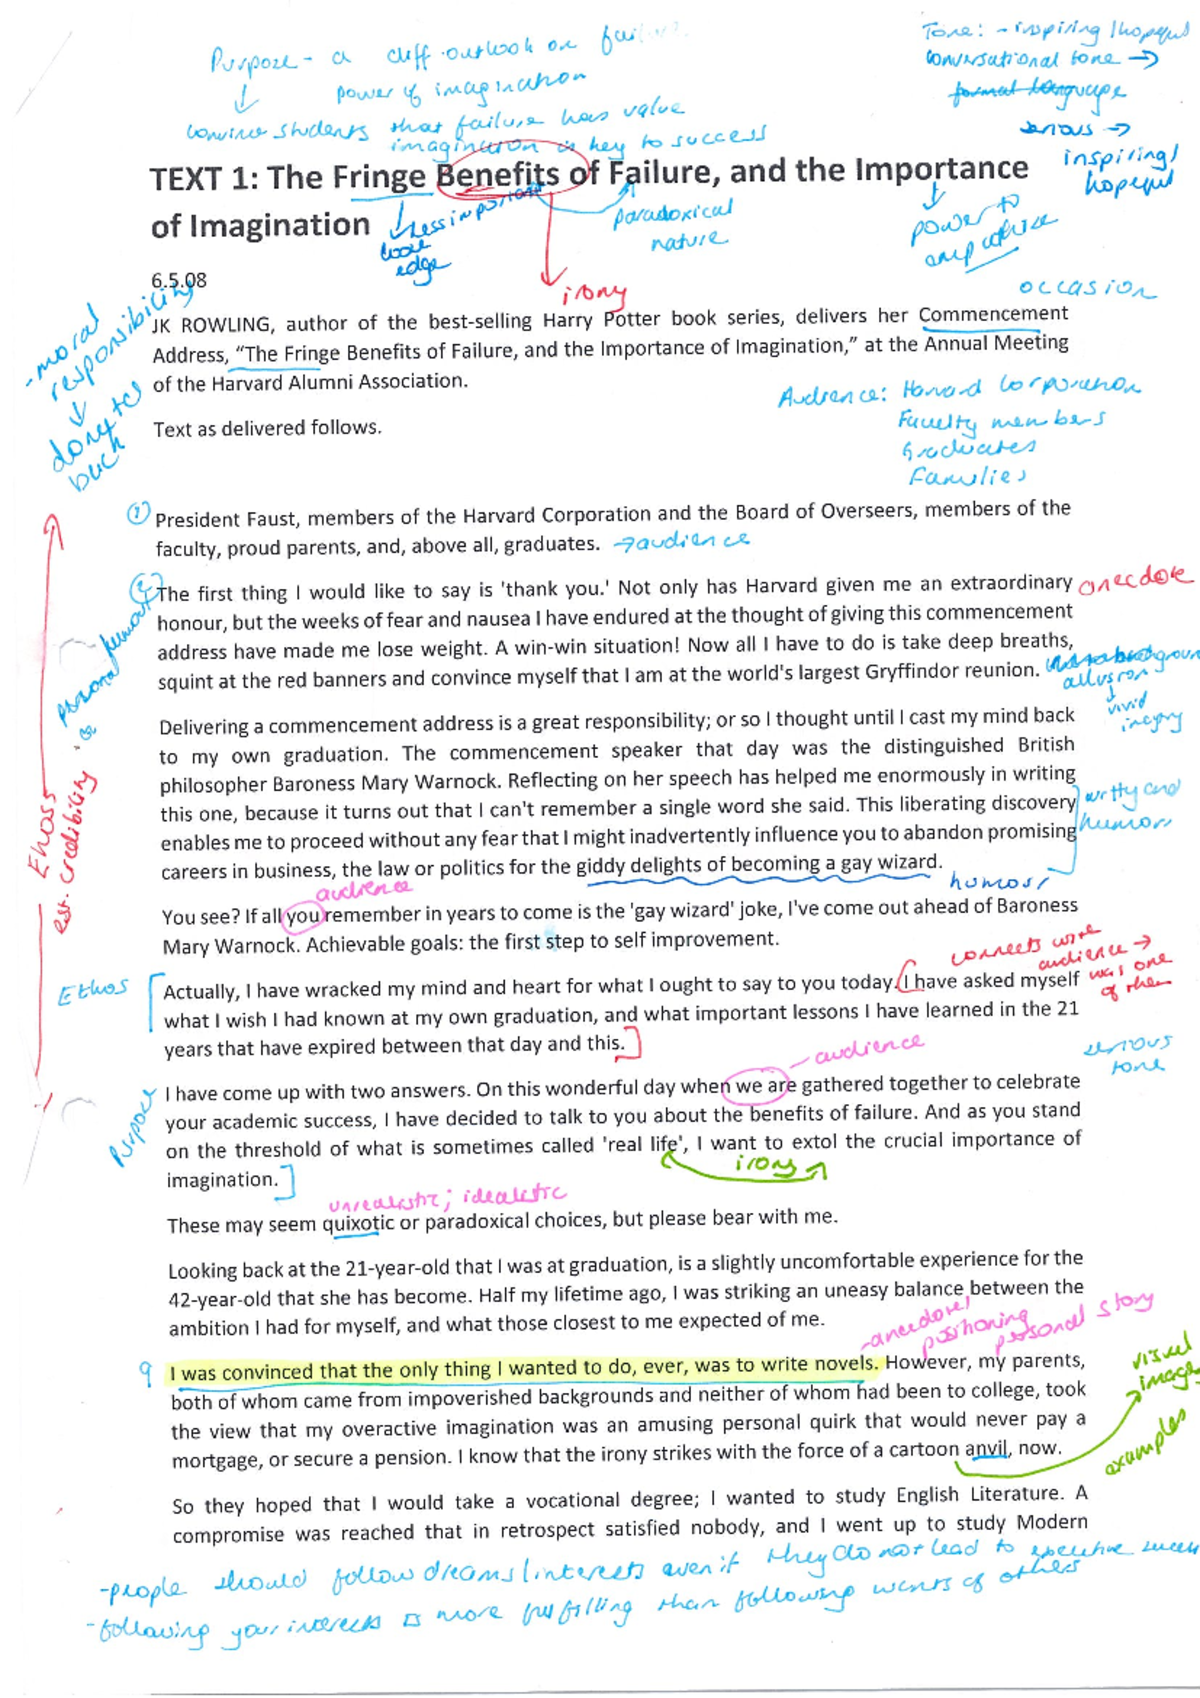 Purpose - a diff outlook on
power of imagination
convince students that failure has value
imagination is key to success
Tone: - inspiring / hopeful
conversational tone →
formal language
serious →
inspiring/
hopeful
TEXT 1: The Fringe Benefits of Failure, and the Importance
of Imagination
less important
edge
paradoxical
nature
irony
power to
empathise
6.5.08
occasion
- moral
responsibility
back
JK ROWLING, author of the best-selling Harry Potter book series, delivers her Commencement
Address, “The Fringe Benefits of Failure, and the Importance of Imagination,” at the Annual Meeting
of the Harvard Alumni Association.
Audience: Harvard Corporation
Faculty members
Graduates
Families
Text as delivered follows.
① President Faust, members of the Harvard Corporation and the Board of Overseers, members of the
faculty, proud parents, and, above all, graduates. → audience
② The first thing I would like to say is 'thank you.' Not only has Harvard given me an extraordinary anecdote
honour, but the weeks of fear and nausea I have endured at the thought of giving this commencement
address have made me lose weight. A win-win situation! Now all I have to do is take deep breaths,
squint at the red banners and convince myself that I am at the world's largest Gryffindor reunion.
allusion
vivid
imagery
personal
humour
Ethos
est. credibility
Delivering a commencement address is a great responsibility; or so I thought until I cast my mind back
to my own graduation. The commencement speaker that day was the distinguished British
philosopher Baroness Mary Warnock. Reflecting on her speech has helped me enormously in writing
this one, because it turns out that I can't remember a single word she said. This liberating discovery
enables me to proceed without any fear that I might inadvertently influence you to abandon promising
careers in business, the law or politics for the giddy delights of becoming a gay wizard.
witty and
humor
audience
humor
You see? If all you remember in years to come is the 'gay wizard' joke, I've come out ahead of Baroness
Mary Warnock. Achievable goals: the first step to self improvement.
connects with
audience →
was one
of them
Ethos
Actually, I have wracked my mind and heart for what I ought to say to you today. I have asked myself
what I wish I had known at my own graduation, and what important lessons I have learned in the 21
years that have expired between that day and this.
audience
serious
tone
Purpose
I have come up with two answers. On this wonderful day when we are gathered together to celebrate
your academic success, I have decided to talk to you about the benefits of failure. And as you stand
on the threshold of what is sometimes called 'real life', I want to extol the crucial importance of
imagination.
irony
unrealistic; idealistic
These may seem quixotic or paradoxical choices, but please bear with me.
Looking back at the 21-year-old that I was at graduation, is a slightly uncomfortable experience for the
42-year-old that she has become. Half my lifetime ago, I was striking an uneasy balance between the
ambition I had for myself, and what those closest to me expected of me.
- anecdote/
positioning
personal story
9 I was convinced that the only thing I wanted to do, ever, was to write novels. However, my parents,
both of whom came from impoverished backgrounds and neither of whom had been to college, took
the view that my overactive imagination was an amusing personal quirk that would never pay a
mortgage, or secure a pension. I know that the irony strikes with the force of a cartoon anvil, now.
visual
examples
So they hoped that I would take a vocational degree; I wanted to study English Literature. A
compromise was reached that in retrospect satisfied nobody, and I went up to study Modern
- people should follow dreams/interests even if they do not lead to
- following your interests is more fulfilling than following wants of others